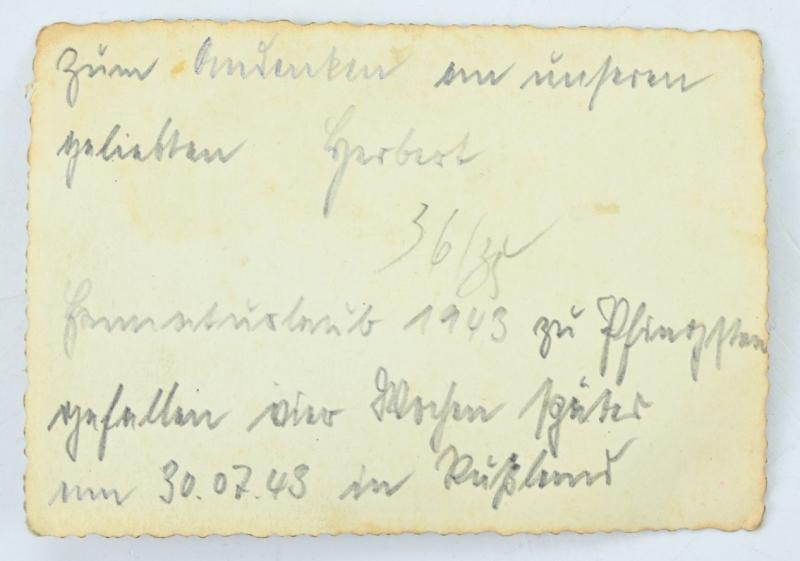 Zum Andenken an unseren
geliebten Herbert
36/
Heimaturlaub 1943 zu Pfingsten
gefallen vier Wochen später
am 30.07.43 in Rußland